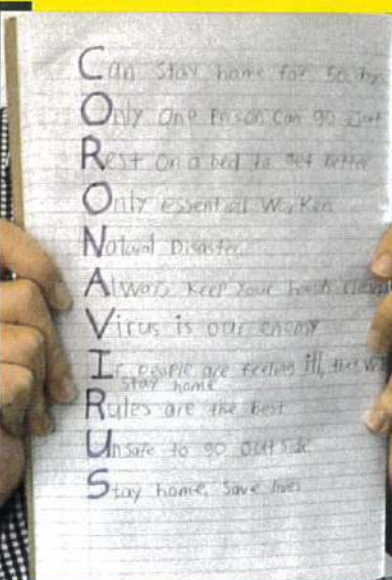 Can Stay home for
Only One Person can go out
Rest on a bed to get better
Only essential
Natural Disaster
Always keep your
Virus is our enemy
If people are feeling ill,
stay home
Rules are the best
Unsafe to go outside
Stay home, Save lives